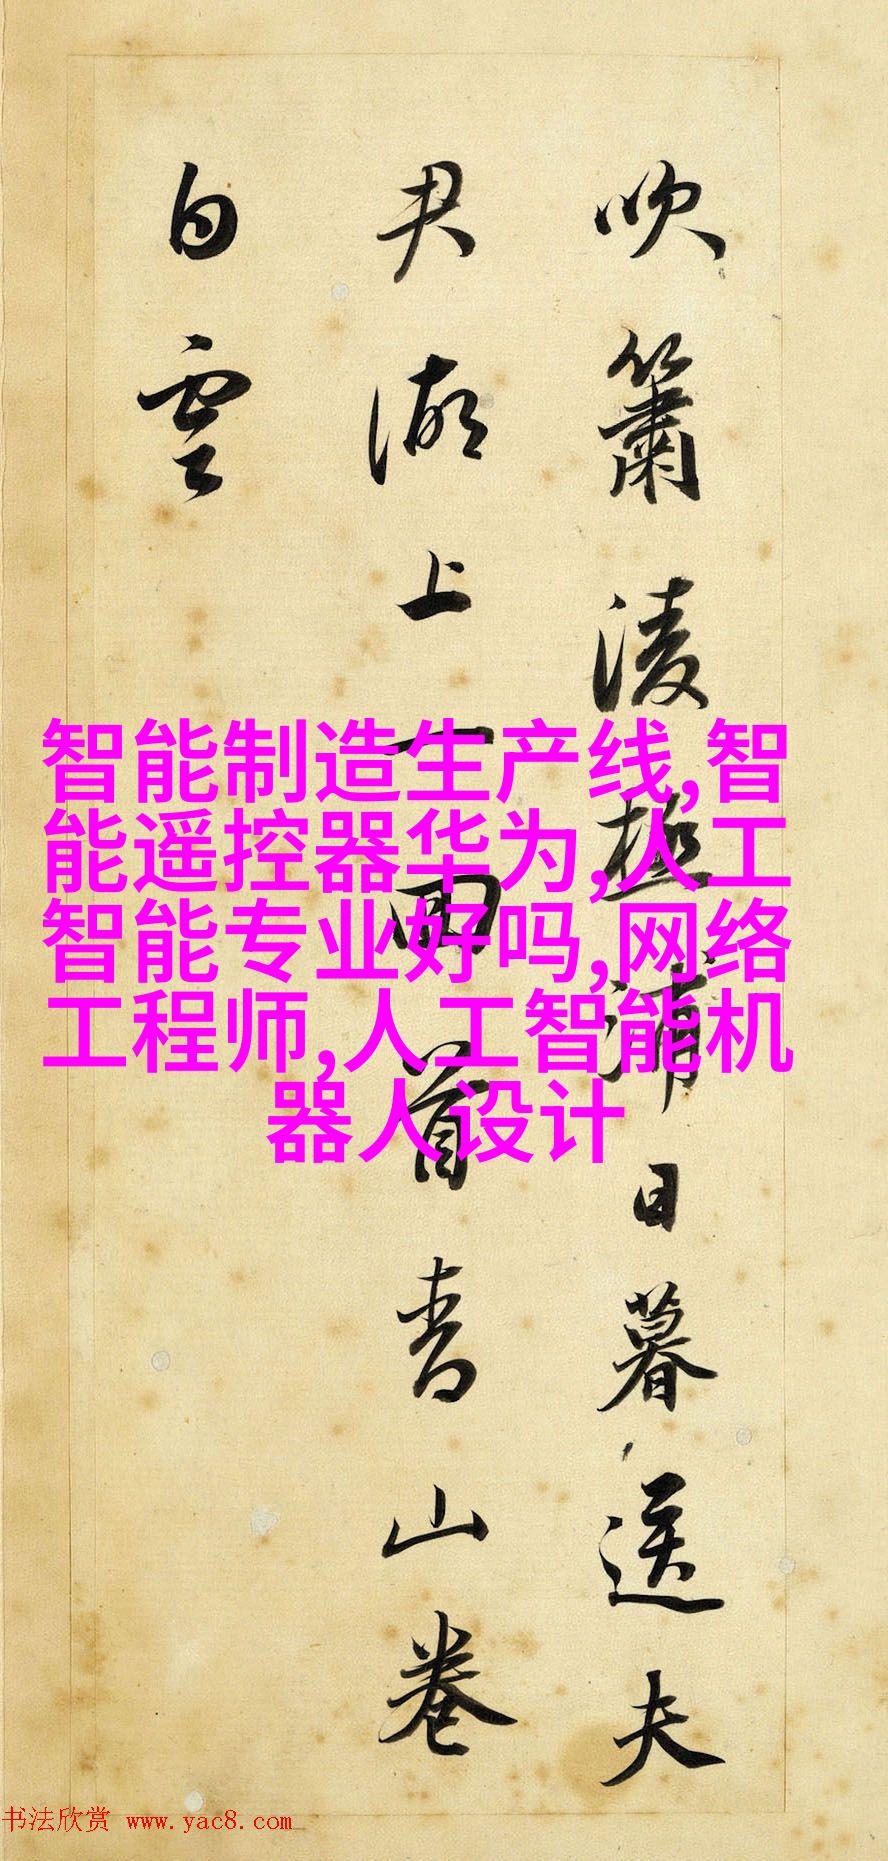 吹箫凌极浦日暮送夫
君湖上一回首青山卷
白云
智能制造生产线,智
能遥控器华为,人工
智能专业好吗,网络
工程师,人工智能机
器人设计
书法欣赏 www.yac8.com